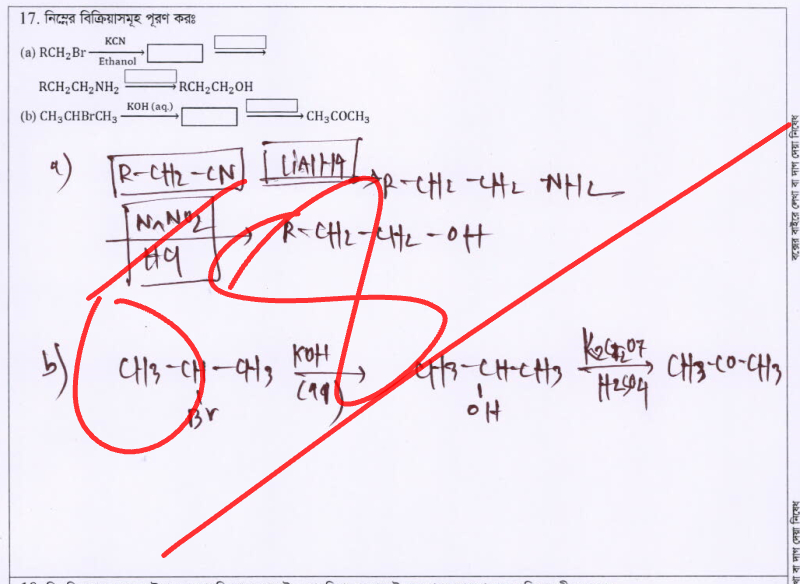 17. নিম্নের বিক্রিয়াসমূহ পূরণ করঃ
(a) RCH₂Br KCN Ethanol
RCH₂CH₂NH₂ RCH₂CH₂OH
(b) CH₃CHBrCH₃ KOH (aq.) CH₃COCH₃
a) R-CH2-CN LiAlH4 R-CH2-CH2-NH2
NaNO2 HCl R-CH2-CH2-OH
b) CH3-CH-CH3 KOH (aq) CH3-CH-CH3 K2Cr2O7 H2SO4 CH3-CO-CH3
Br OH
বক্সের বাইরে লেখা বা দাগ দেয়া নিষেধ
বা দাগ দেয়া নিষেধ